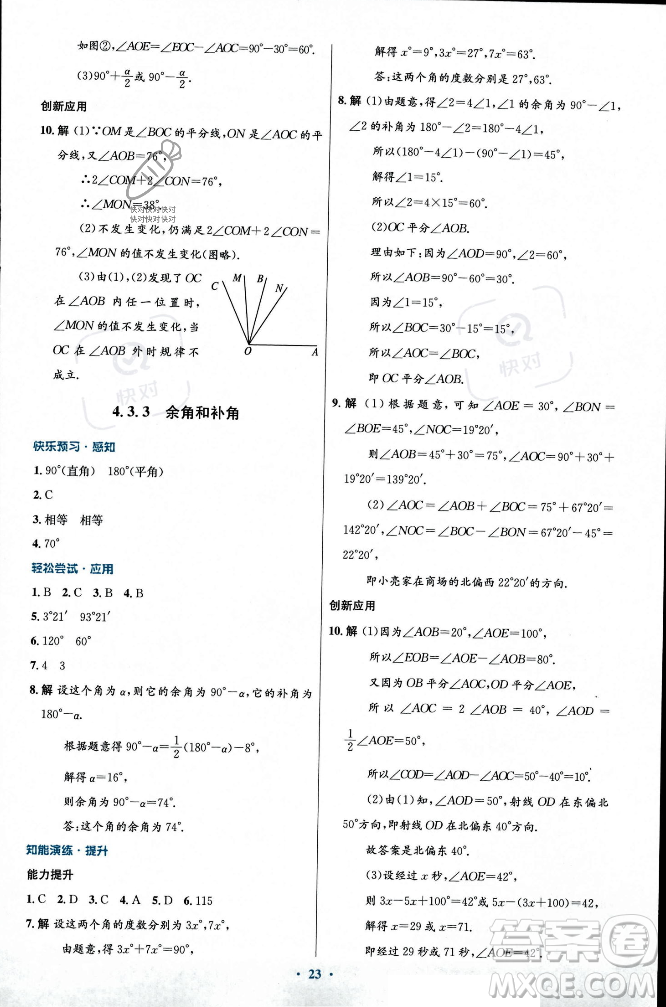 如图②,∠AOE=∠EOC-∠AOC=90°-30°=60°.
(3)90°+α/2或90°-α/2.
创新应用
10.解 (1)∵OM是∠BOC的平分线,ON是∠AOC的平
分线,又∠AOB=76°,
∴2∠COM+2∠CON=76°,
∴∠MON=38°.
快对快对快对
快对快对快对
(2)不发生变化,仍满足2∠COM+2∠CON=
76°,∠MON的值不发生变化(图略).
(3)由(1),(2)发现了OC
在∠AOB内任一位置时,
∠MON的值不发生变化,当
OC在∠AOB外时规律不
成立.
C M B N
O A
快对
4.3.3 余角和补角
快乐预习·感知
1.90°(直角) 180°(平角)
2.C
3.相等 相等
4.70°
轻松尝试·应用
1.B 2.C 3.B 4.B
5.3°21′ 93°21′
6.120° 60°
7.4 3
8.解 设这个角为α,则它的余角为90°-α,它的补角为
180°-α.
根据题意得90°-α=1/2(180°-α)-8°,
解得α=16°,
则余角为90°-α=74°.
答:这个角的余角为74°.
知能演练·提升
能力提升
1.C 2.C 3.A 4.A 5.D 6.115
7.解 设这两个角的度数分别是3x°,7x°,
由题意,得3x°+7x°=90°,
解得x°=9°,3x°=27°,7x°=63°.
答:这两个角的度数分别是27°,63°.
8.解 (1)由题意,得∠2=4∠1,∠1的余角为90°-∠1,
∠2的补角为180°-∠2=180°-4∠1,
所以(180°-4∠1)-(90°-∠1)=45°,
解得∠1=15°.
所以∠2=4×15°=60°.
(2)OC平分∠AOB.
理由如下:因为∠AOD=90°,∠2=60°,
所以∠AOB=90°-60°=30°.
因为∠1=15°,
所以∠BOC=30°-15°=15°.
所以∠1=∠BOC,
即OC平分∠AOB.
快对
9.解 (1)根据题意,可知∠AOE=30°,
∠BOE=45°,∠NOC=19°20′,
则∠AOB=45°+30°=75°,∠BOC=87°-
19°20′=67°20′.
(2)∠AOC=∠AOB+∠BOC=75°+67°20′=
142°20′,∠NOC=∠BOC-45°=67°20′-45°=
22°20′.
即小亮家在商场的北偏西22°20′的方向.
创新应用
10.解 (1)因为∠AOB=20°,∠AOE=100°,
所以∠EOB=∠AOE-∠AOB=80°.
又因为OB平分∠AOC,OD平分∠AOE,
所以∠AOC=2∠AOB=40°,∠AOD=
1/2∠AOE=50°,
所以∠COD=∠AOD-∠AOC=50°-40°=10°.
(2)由(1)知,∠AOD=50°,射线OD在东偏北
50°方向,即射线OD在北偏东40°方向.
故答案是北偏东40°.
(3)设经过x秒,∠AOE=42°,
则3x-5x+100=42或5x-(3x+100)=42,
解得x=29或x=71.
即经过29秒或71秒,∠AOE=42°.
23
答案圈